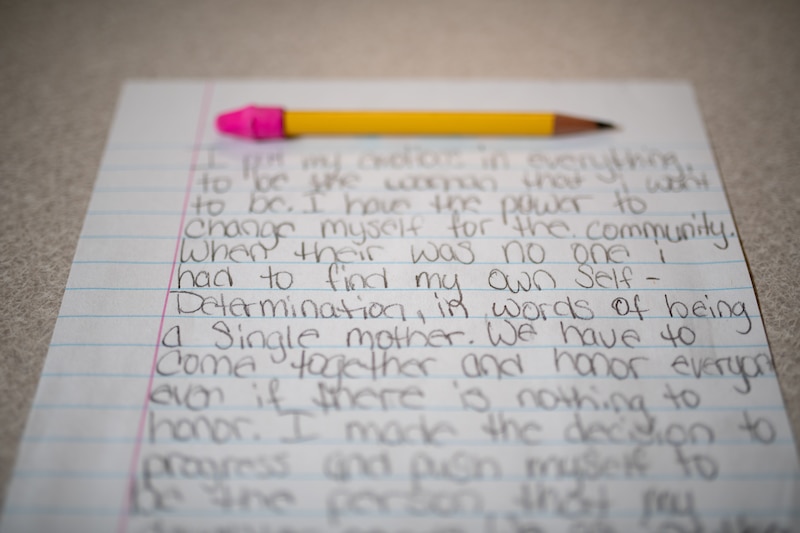 I put my emotions in everything,
to be the woman that I want
to be. I have the power to
change myself for the community.
When their was no one i
had to find my own Self-
Determination, in words of being
a Single mother. We have to
Come together and honor everyon
even if there is nothing to
honor. I made the decision to
progress and push myself to
be the person that my